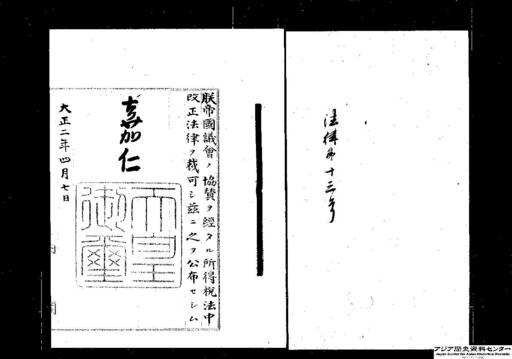 法律第十三号
朕帝國議會ノ協賛ヲ經タル所得税法中
改正法律ヲ裁可シ茲ニ之ヲ公布セシム
嘉仁
天皇
御璽
大正二年四月七日
アジア歴史資料センター
Japan Center for Asian Historical Records